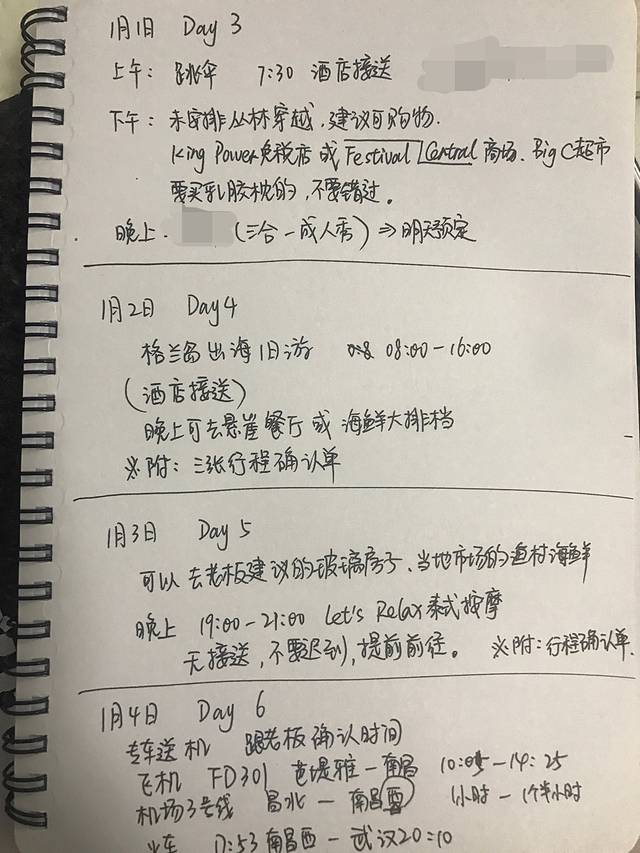 1月1日 Day 3
上午: 跳伞 7:30 酒店接送
下午: 未安排丛林穿越,建议可购物.
King Power免税店 或 Festival Central 商场、Big C超市
要买乳胶枕的,不要错过。
晚上. (三合一成人秀) ⇒ 明天预定
1月2日 Day4
格兰岛出海1日游 08:00-16:00
(酒店接送)
晚上可去悬崖餐厅 或 海鲜大排档
※附: 三张行程确认单
1月3日 Day 5
可以去老板建议的玻璃房子、当地市场的渔村海鲜
晚上 19:00-21:00 Let's Relax 泰式按摩
无接送,不要迟到,提前前往。 ※附:行程确认单.
1月4日 Day 6
专车送机 跟老板确认时间
飞机 FD301 芭堤雅-南昌 10:05-14:25
机场3号线 昌北-南昌西 1小时-1个半小时
火车 17:53 南昌西-武汉20:10